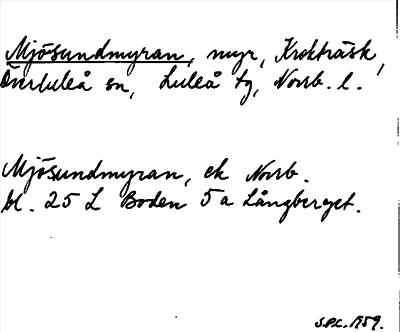 Mjösundmyran, myr, Krokträsk,
Överluleå sn, Luleå tg, Norrb. l.
Mjösundmyran, ek Norrb.
bl. 25 L Boden 5 a Långberget.
S.P.L. 1959.